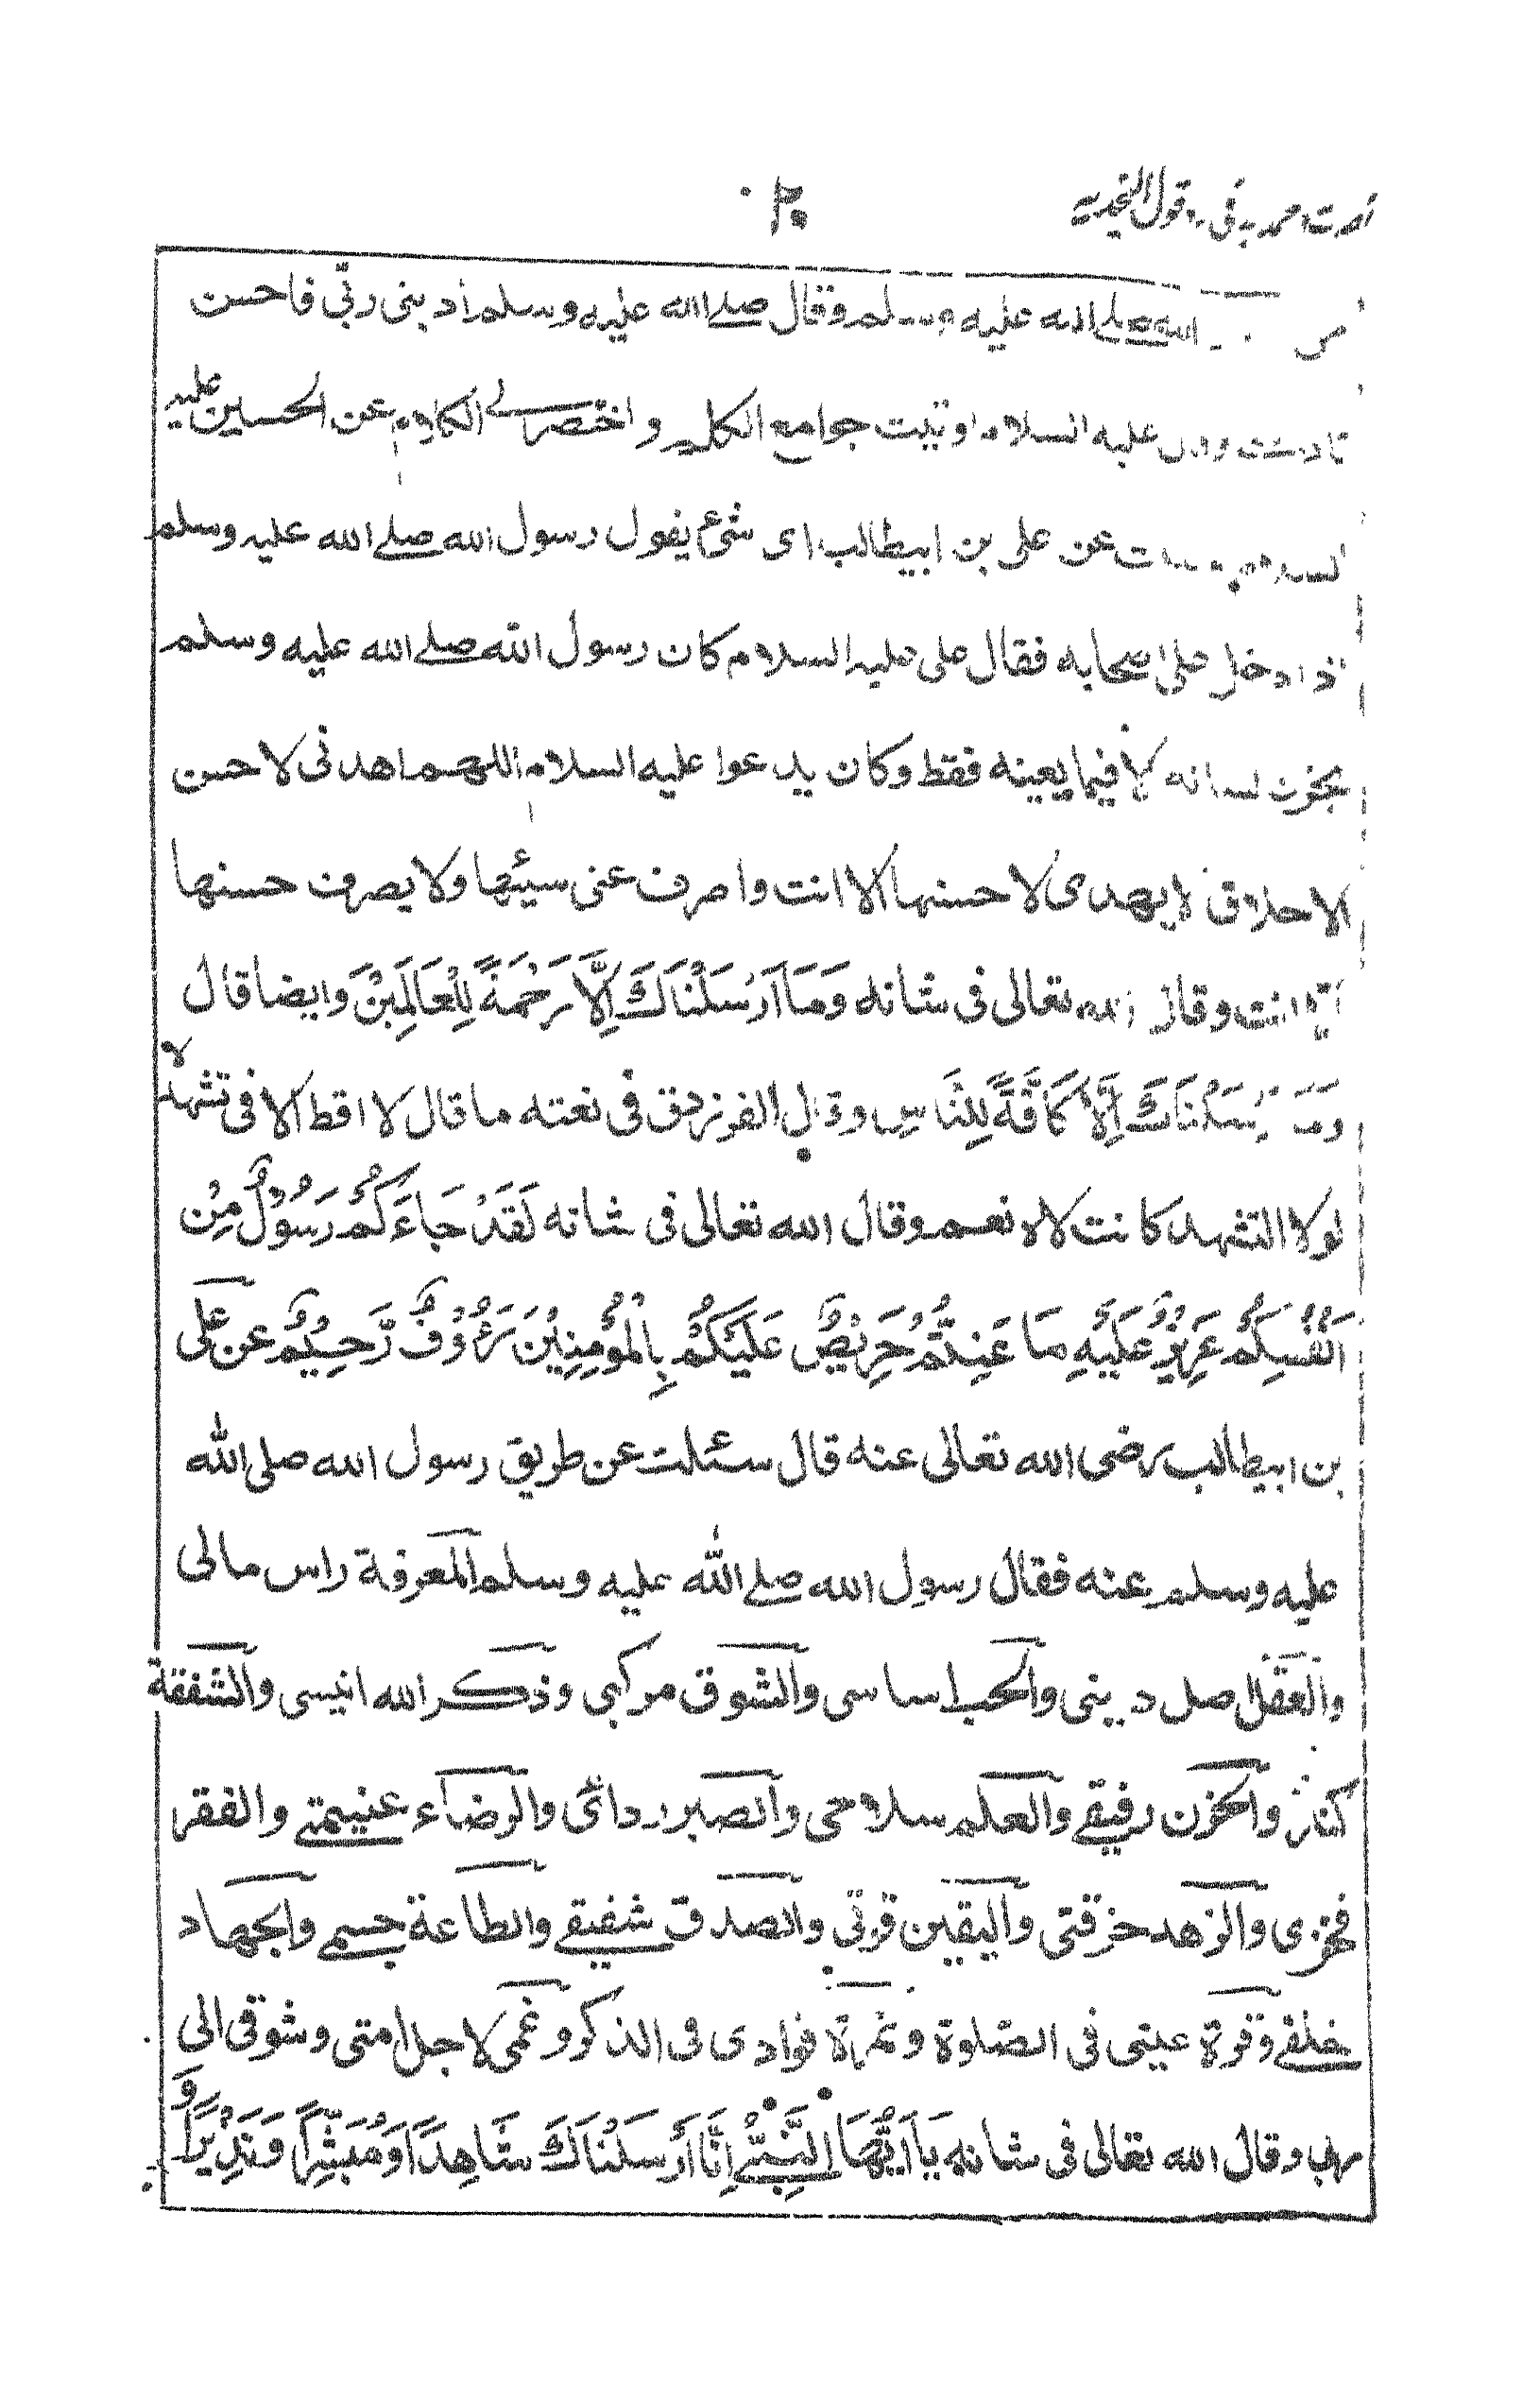 قول النجدیہ
الله صلے الله علیه وسلم وقال صلے الله علیه وسلم أدبنی ربّی فاحسن
علیه السلام اوتیت جوامع الکلم واختصر لے الکلام عن الحسین علیه
السلام عن علی بن ابیطالب ای شیٔ یفول رسول الله صلے الله علیه وسلم
اذا دخل علی اصحابه فقال علی علیه السلام کان رسول الله صلے الله علیه وسلم
یخزن لسانه الا فیما یعینه فقط وکان یدعوا علیه السلام اللهم اهدنی لاحسن
الاخلاق لا یهدی لاحسنها الا انت واصرف عنی سیئها ولا یصرف حسنها
الا انت وقال الله تعالی فی شانه وَمَا اَرْسَلْنَاكَ اِلَّا رَحْمَةً لِلْعَالَمِيْنَ وایضا قال
وَمَا اَرْسَلْنَاكَ اِلَّا كَافَّةً لِلنَّاسِ وقال الفرزدق فی نعته ما قال لا اقط الا فی تشهده
لولا التشهد کانت لاه نعم وقال الله تعالی فی شانه لَقَدْ جَاءَكُمْ رَسُوْلٌ مِنْ
اَنْفُسِكُمْ عَزِيْزٌ عَلَيْهِ مَا عَنِتُّمْ حَرِيْصٌ عَلَيْكُمْ بِالْمُؤْمِنِيْنَ رَءُوْفٌ رَّحِيْمٌ عن علی
بن ابیطالب رضی الله تعالی عنه قال سئلت عن طریق رسول الله صلی الله
علیه وسلم عنه فقال رسول الله صلے الله علیه وسلم المعرفة راس مالی
والعقل اصل دینی والحب اساسی والشوق مرکبی وذکر الله انیسی والشفقة
کنز والحزن رفیقے والعلم سلاحی والصبر ردائی والرضاء عنیمتے والفقر
فخری والزهد حرفتی والیقین قوتی والصدق شفیقے والطاعة حسبی والجهاد
خلقے وقرة عینی فی الصّلوة وثمرة فوادی فی الذکر وغمی لاجل امتی وشوقی الی
ربی وقال الله تعالی فی شانه يَا اَيُّهَا النَّبِيُّ اِنَّا اَرْسَلْنَاكَ شَاهِدًا وَمُبَشِّرًا وَنَذِيْرًا وَ